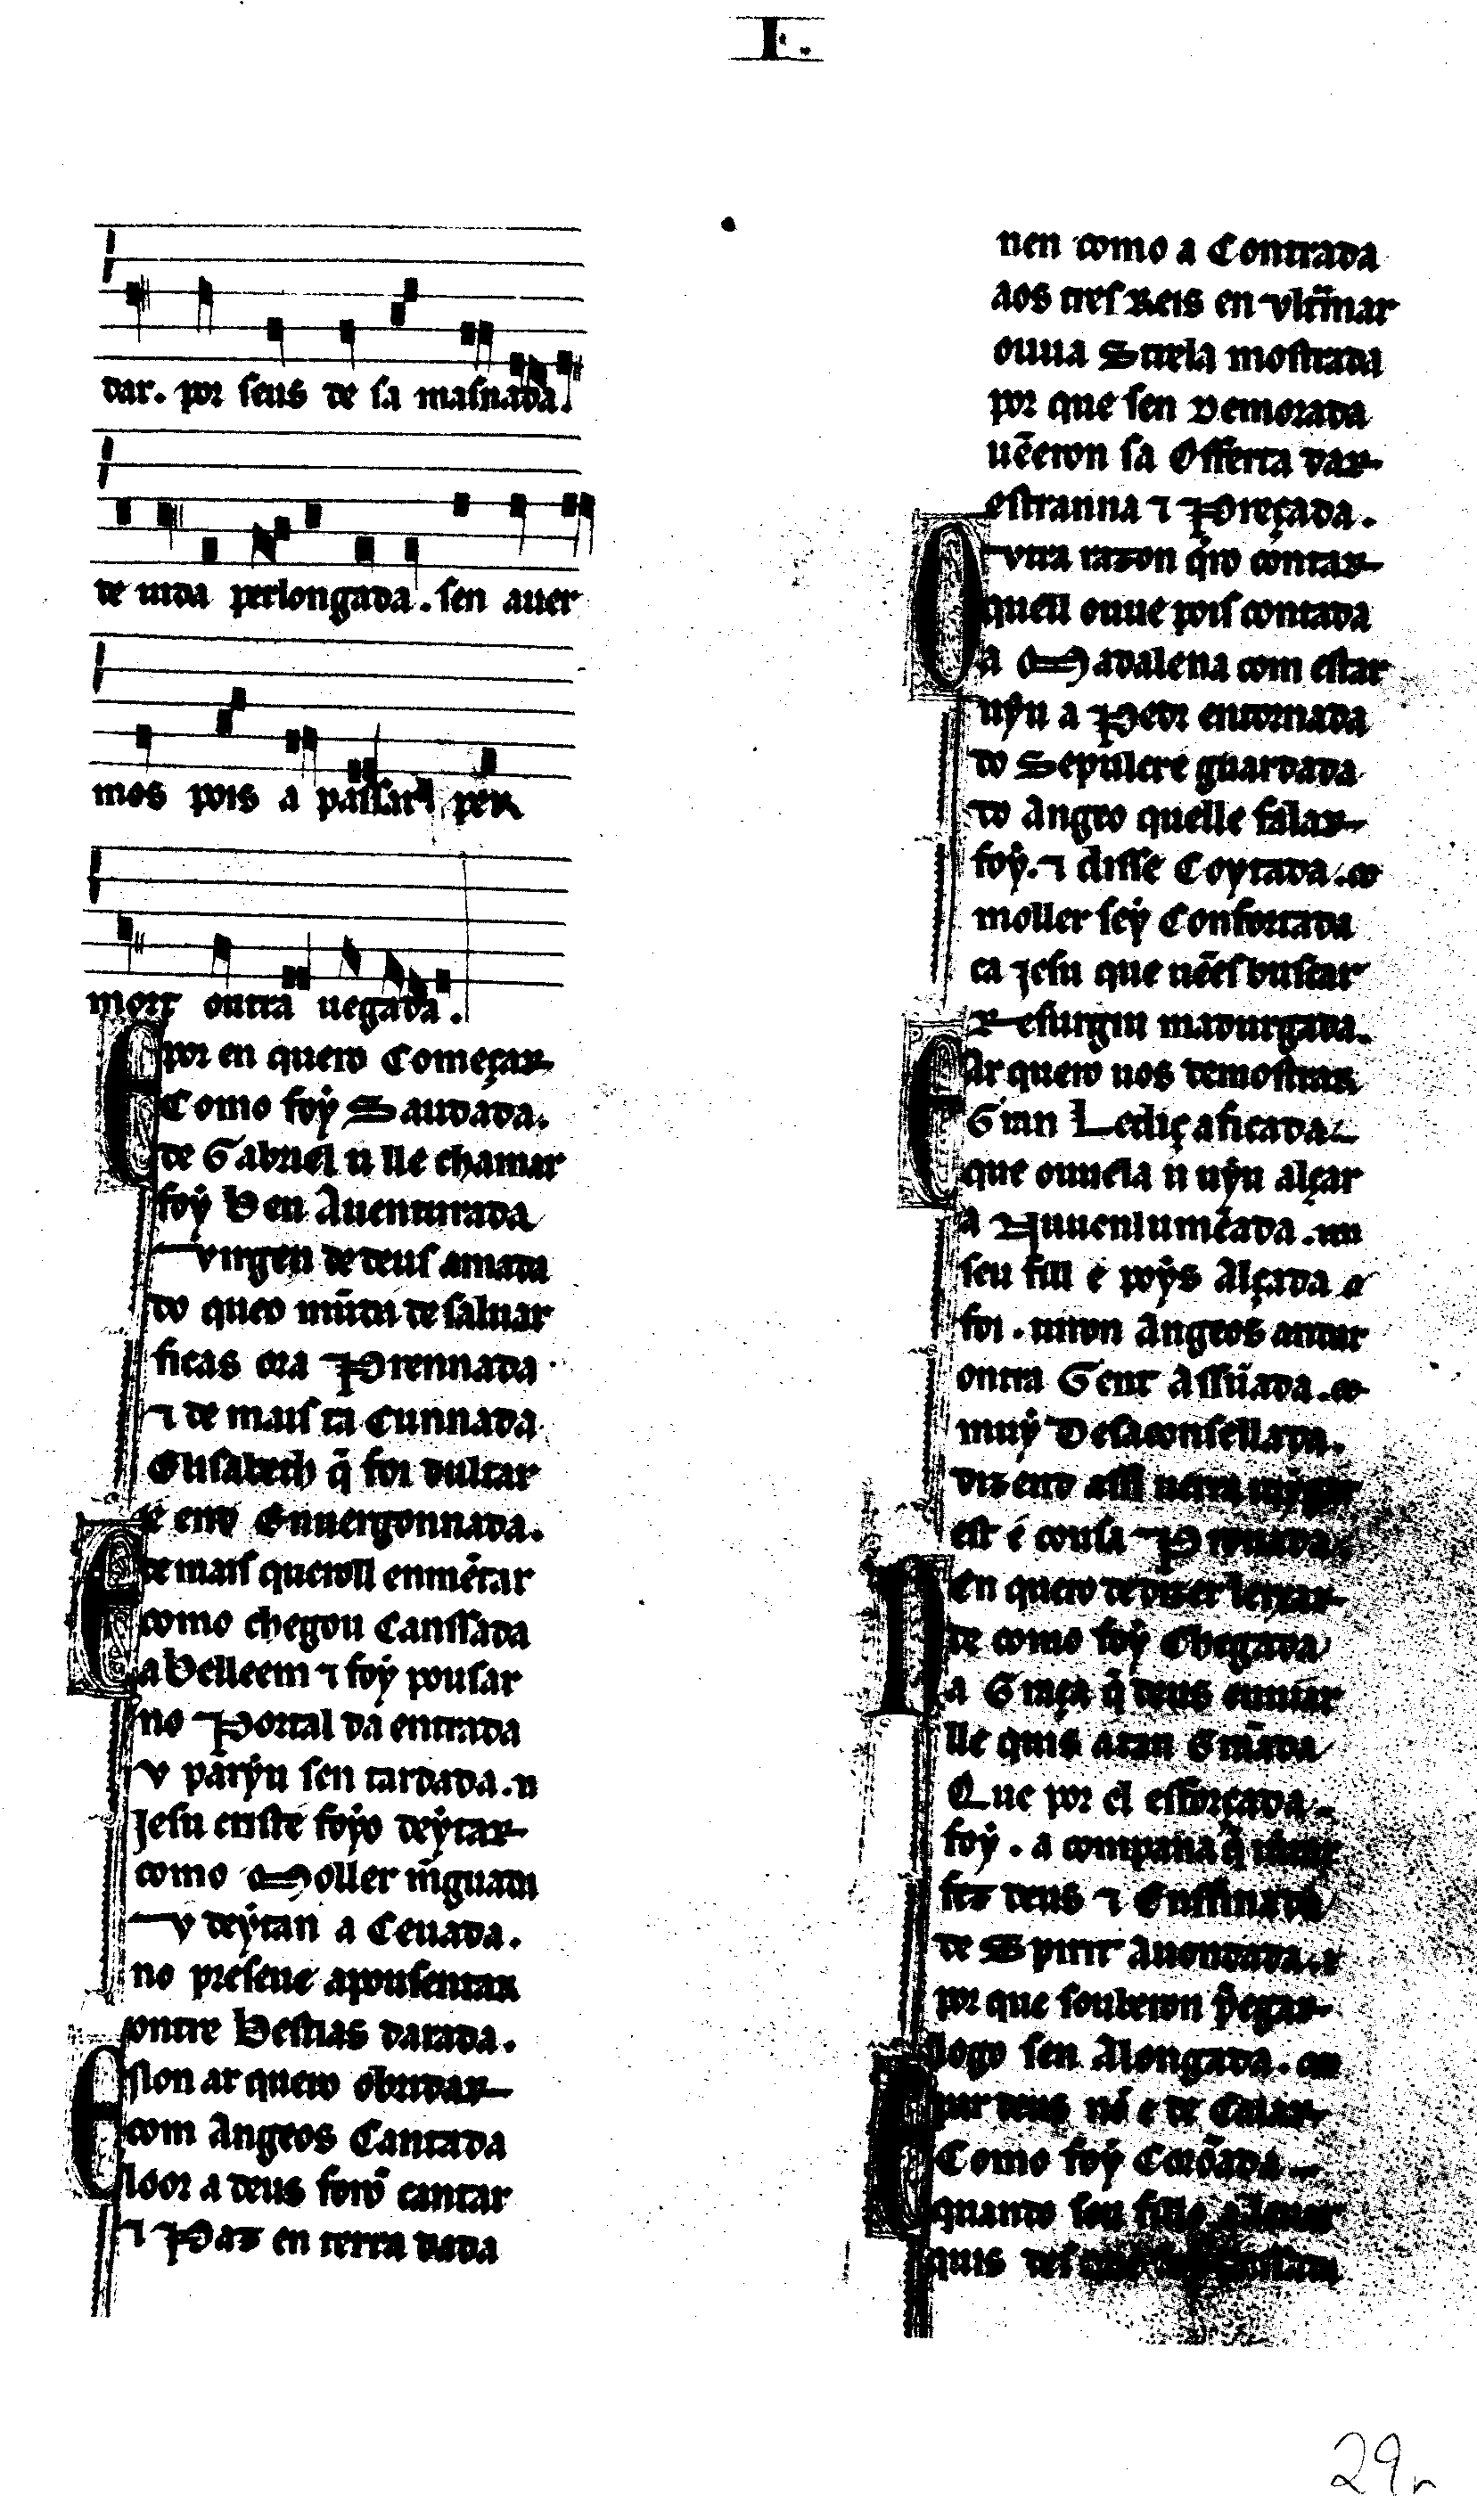 I.
dar. por seus de sa masnada.
de uida perlongada. sen auer
mos pois a passar per
mort outra uegada.
E por en quero Começar
Como foy Saudada.
de Gabriel u lle chamar
foy Ben Auenturada
Uirgen de deus amada
do queo mũdu de saluar
ficas ora Prennada
⁊ de mais ta Cunnada
Elisabeth q̃ foi dultar
é end Enuergonnada.
E de mais queroull enmẽtar
como chegou Canssada
a Belleem ⁊ foy pousar
no Portal da entrada
u pariu sen tardada. u
Jesu criste foyo deytar
como Moller mĩguada
u deytan a Ceuada.
no preseue apousentar
ontre Bestias darada.
E non ar quero obridar
com Angeos Cantada
loor a deus forõ cantar
⁊ Paz en terra dada
nen como a Contrada
aos tres Reis en Ultramar
ouua Strela mostrada
por que sen Demorada
uẽeron sa Offerta dar
estranna ⁊ Preçada.
Outra razon q̃ro contar
quell ouue pois contada
a Madalena com estar
uyu a Pedr entornada
do Sepulcre guardada
do Angeo quelle falar
foy. ⁊ disse Coytada. 
moller sey Confortada
ca Jesu que uẽes buscar
Resurgiu madurgada.
E Ar quero uos demostrar
Gran Lediç aficada
que ouuela u uyu alçar
a Nuuenlumẽada.
seu fill e poys Alçada
foi. uiron Angeos andar
ontra Gent Assũada.
muy Desaconsellada.
dizend assi uerra
est é cousa Prouada.
Nen quero de dizer leixar
de como foy Chegada
a Graça q̃ deus enuiar
lle quis atan Grãada
Que por el esforçada
foy. a compana q̃
fez deus ⁊ Enssinada
de Spirit Auondada.
por que souberon p̃egar
logo sen Alongada.
E par deus nõ é de Calar
Como foy Corõada
quando seu fillo a leuar
quis des
29r